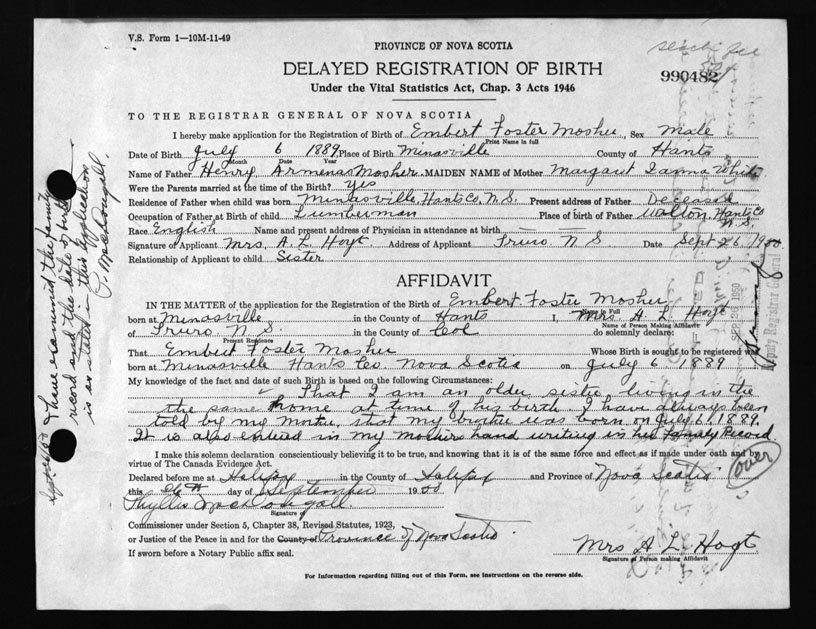 V.S. Form 1—10M-11-49
PROVINCE OF NOVA SCOTIA
DELAYED REGISTRATION OF BIRTH
990482
Under the Vital Statistics Act, Chap. 3 Acts 1946
TO THE REGISTRAR GENERAL OF NOVA SCOTIA
I hereby make application for the Registration of Birth of Embert Foster Mosher, Sex Male
Print Name in full
Date of Birth July 6 1889, Place of Birth Minasville County of Hants
Month Date Year
Name of Father Henry Armenas Mosher. MAIDEN NAME of Mother Margaret Ianna White
Were the Parents married at the time of the Birth? Yes
Residence of Father when child was born Minasville, Hants Co, N.S. Present address of Father Deceased
Occupation of Father at Birth of child Lumberman Place of birth of Father Walton, Hants Co
N.S.
Race English Name and present address of Physician in attendance at birth
Signature of Applicant Mrs. A. L. Hoyt. Address of Applicant Truro. N S Date Sept 26, 1950
Relationship of Applicant to child Sister
AFFIDAVIT
IN THE MATTER of the application for the Registration of the Birth of Embert Foster Mosher
Name in Full
born at Minasville in the County of Hants I, Mrs A L Hoyt
Name of Person Making Affidavit
of Truro N S. in the County of Col do solemnly declare:
Present Residence
That Embert Foster Mosher Whose Birth is sought to be registered was
born at Minasville Hants Co. Nova Scotia on July 6 1889
My knowledge of the fact and date of such Birth is based on the following Circumstances:
That I am an older sister living in the
the same home at time of his birth. I have always been
told by my mother, that my brother was born on July 6, 1889.
It is also entered in my mothers hand writing in her Family Record
I make this solemn declaration conscientiously believing it to be true, and knowing that it is of the same force and effect as if made under oath and by
virtue of The Canada Evidence Act.
(over)
Declared before me at Halifax in the County of Halifax and Province of Nova Scotia
this 26th day of September 1950
Phyllis MacDougall
Signature of
Commissioner under Section 5, Chapter 38, Revised Statutes, 1923,
or Justice of the Peace in and for the County of Province of Nova Scotia.
If sworn before a Notary Public affix seal.
Mrs A L Hoyt.
Signature of Person making Affidavit
For Information regarding filling out of this Form, see instructions on the reverse side.
I have examined the family
record and the date of birth
is as stated in this application
P. MacDougall.
SEP 26 1950
Deputy Registrar General